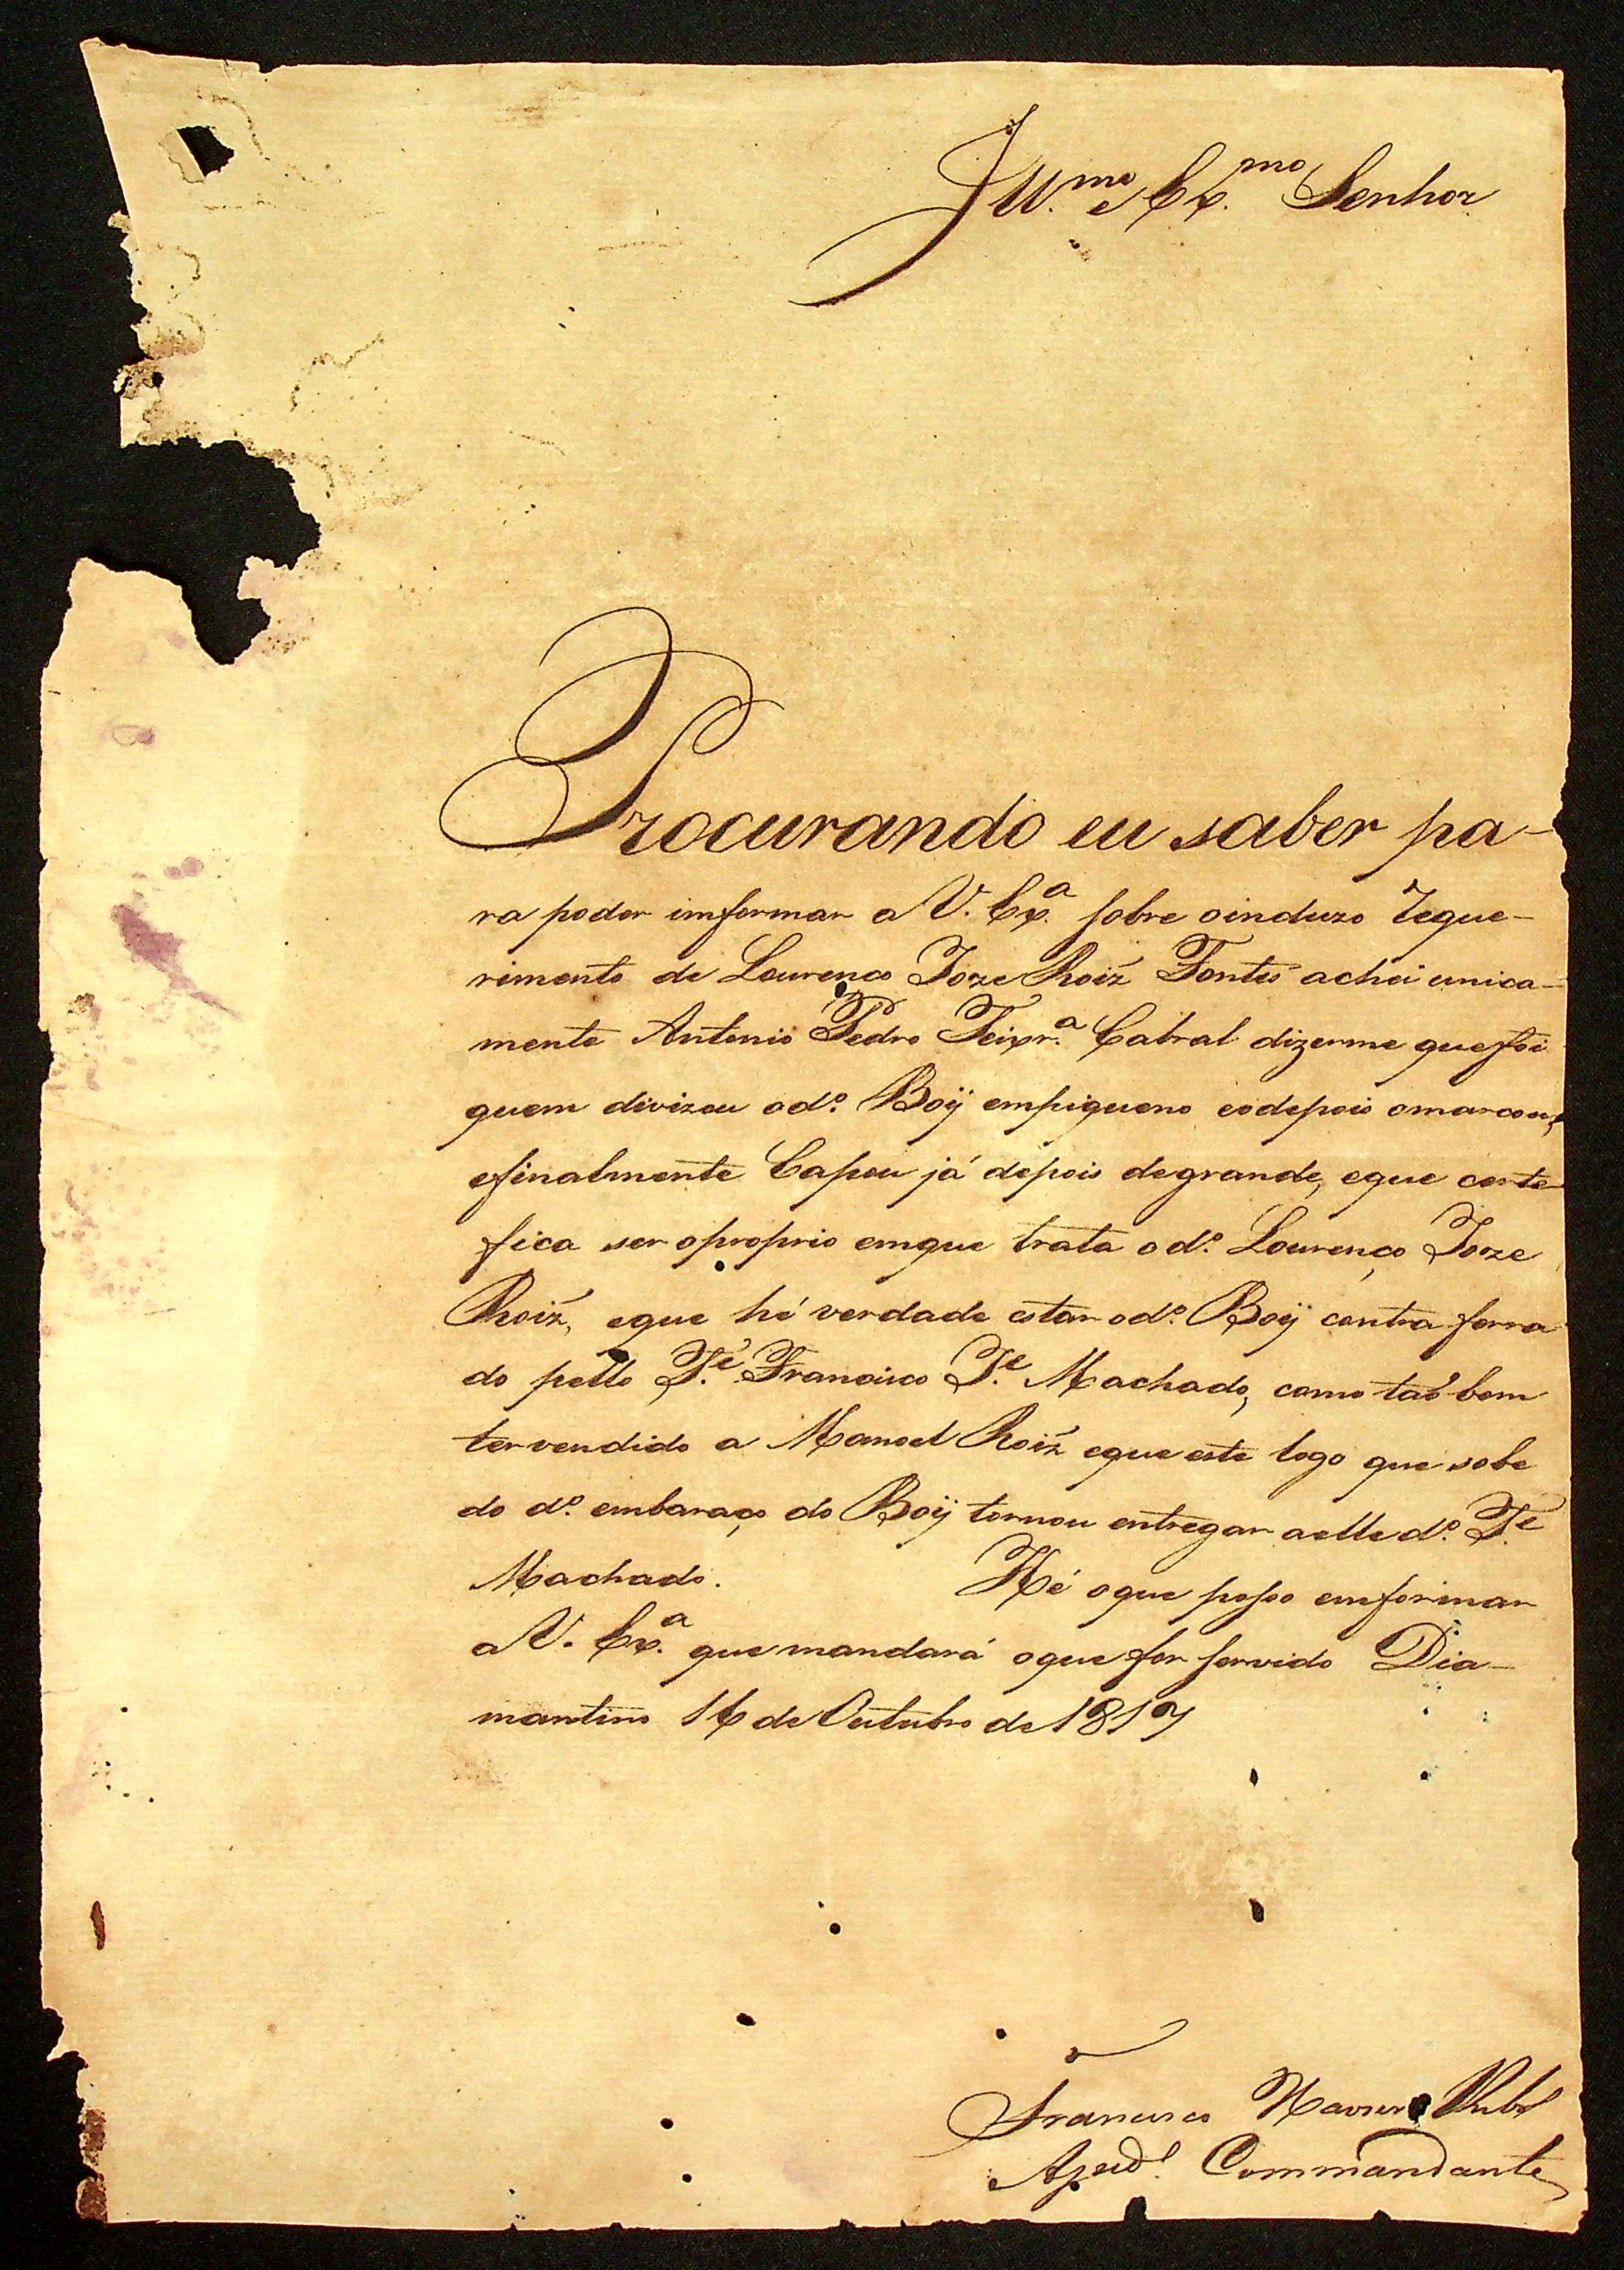 Ill.mo e Ex.mo Senhor
Procurando eu saber pa-
ra poder imformar a V. Ex.a sobre oincluzo reque-
rimento de Lourenço Joze Roiz Fontes achei unica-
mente Antonio Pedro Teixr.a Cabral dizerme quefoi
quem divizou od.o Boÿ empiqueno eodepois omarcou,
efinalmente Capou já depois degrande, eque certe-
fica ser oproprio emque trata o d.o Lourenço Joze
Roiz, eque hé verdade estar od.o Boÿ contra ferra
do pello T.e Francisco J.e Machado, como taõ bem
ter vendido a Manoel Roiz eque este logo que sobe
do d.o embaraço do Boÿ tornou entregar aelle d.o T.e
Machado. Hé oque posso emformar
a V. Ex.a que mandará oque for servido Dia-
mantino 16 de Outubro de 1817
Francisco Xavier
Ajud.e Commandante